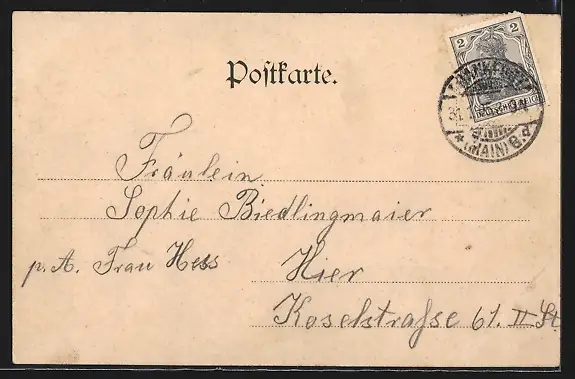 Postkarte.
2
(MAIN)
Fräulein
Sophie Biedlingmaier
p. A. Frau Hess
Hier
Koselstraße 61. II St.